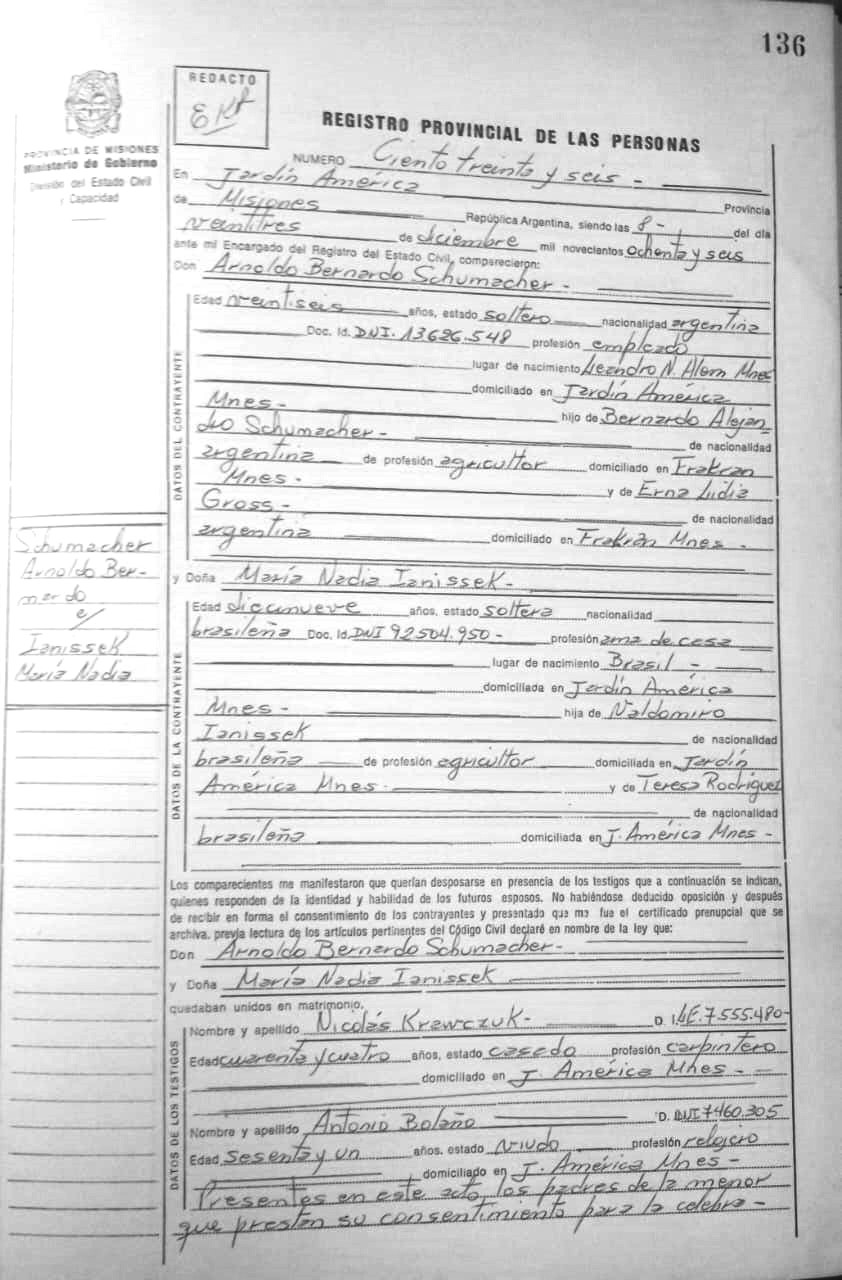 136
REDACTO
PROVINCIA DE MISIONES
Ministerio de Gobierno
División del Estado Civil
y Capacidad
REGISTRO PROVINCIAL DE LAS PERSONAS
NUMERO Ciento treinta y seis -
En Jardín América Provincia
de Misiones República Argentina, siendo las 8- del día
veintitres de diciembre mil novecientos ochenta y seis
ante mi Encargado del Registro del Estado Civil, comparecieron:
Don Arnoldo Bernardo Schumacher -
DATOS DEL CONTRAYENTE
Edad veintiseis años, estado soltero nacionalidad argentina
Doc. Id. DNI. 13626.548 profesión empleado
lugar de nacimiento Leandro N. Alem Mnes
domiciliado en Jardín América
Mnes - hijo de Bernardo Alejan
dro Schumacher - de nacionalidad
argentina de profesión agricultor domiciliado en Frakran
Mnes - y de Erna Lidia
Gross - de nacionalidad
argentina domiciliado en Frakran Mnes -
Schumacher
Arnoldo Ber-
nardo
c/
Ianissek
María Nadia
y Doña María Nadia Ianissek -
DATOS DE LA CONTRAYENTE
Edad diecinueve años, estado soltera nacionalidad
brasileña Doc. Id. DNI 92504.950 - profesión ama de casa
lugar de nacimiento Brasil -
domiciliada en Jardín América
Mnes - hija de Valdomiro
Ianissek de nacionalidad
brasileña de profesión agricultor domiciliada en Jardín
América Mnes - y de Teresa Rodriguez
de nacionalidad
brasileña domiciliada en J. América Mnes -
Los comparecientes me manifestaron que querían desposarse en presencia de los testigos que a continuación se indican,
quienes responden de la identidad y habilidad de los futuros esposos. No habiéndose deducido oposición y después
de recibir en forma el consentimiento de los contrayantes y presentado que me fue el certificado prenupcial que se
archiva, previa lectura de los artículos pertinentes del Código Civil declaré en nombre de la ley que:
Don Arnoldo Bernardo Schumacher -
y Doña María Nadia Ianissek
quedaban unidos en matrimonio.
DATOS DE LOS TESTIGOS
Nombre y apellido Nicolás Krawczuk - D. I. LE. 7.555.480-
Edad cuarenta y cuatro años, estado casado profesión carpintero
domiciliado en J. América Mnes -
Nombre y apellido Antonio Bolaño D. DNI 7460.305
Edad sesenta y un años. estado viudo profesión relojero
domiciliado en J. América Mnes -
Presentes en este acto, los padres de la menor
que prestan su consentimiento para la celebra -